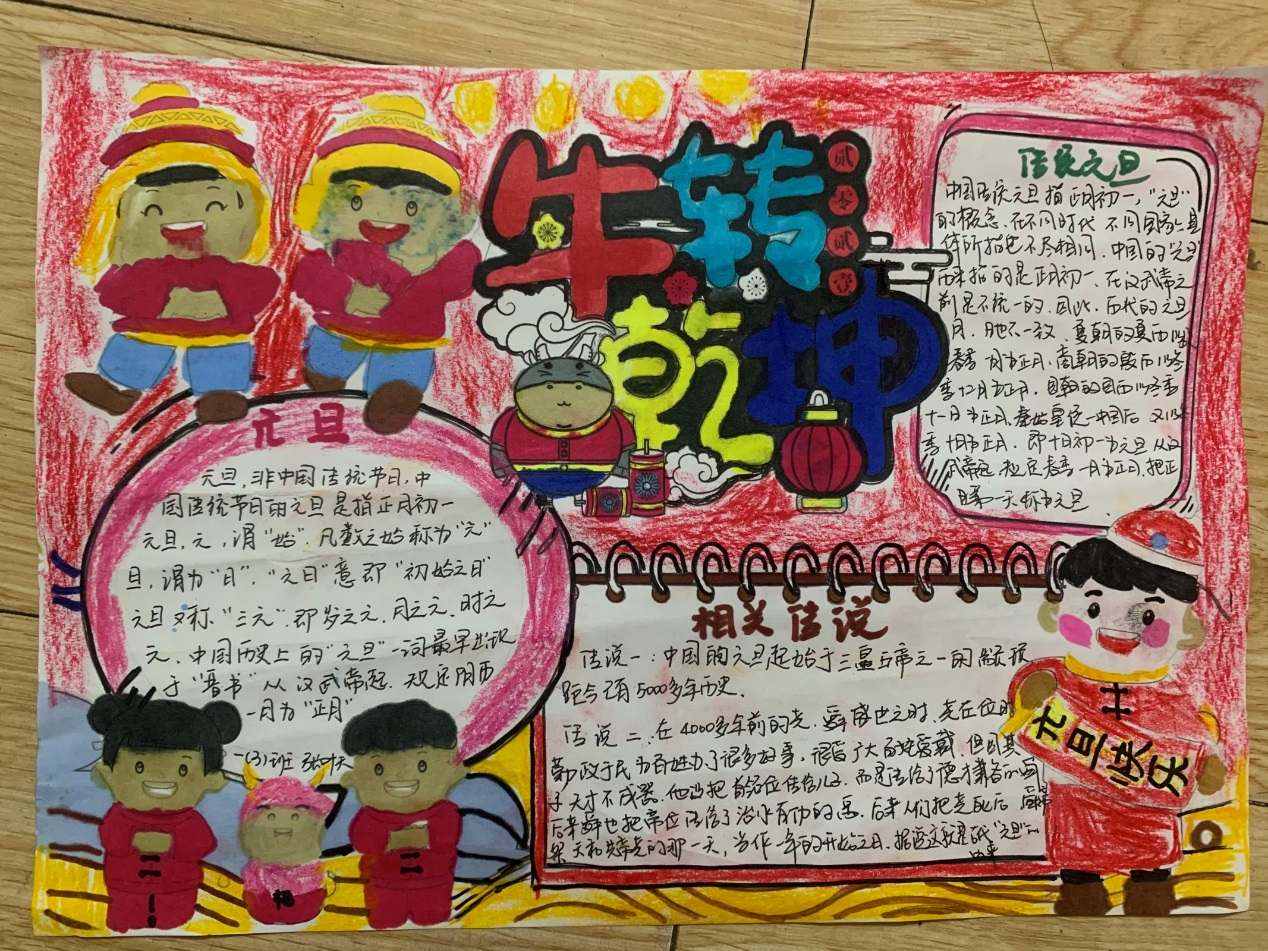 牛转
乾坤
贰零贰壹
元旦
元旦，非中国传统节日，中
国传统节日的元旦是指正月初一
元旦，元，谓"始"，凡数之始称为"元"
旦，谓为"日"，"元旦"意即"初始之日"
元旦又称"三元"，即岁之元，月之元，时之
元，中国历史上的"元旦"一词最早出现
于"晋书"从汉武帝起，规定阴历
一月为"正月"
一(3)班
传统元旦
中国传统元旦指正月初一，"元旦"
的概念，在不同时代 不同国家
所指也不尽相同，中国的"元旦"
历来指的是正月初一，在汉武帝之
前是不统一的，因此，历代的元旦
月、日也不一致，夏朝的夏历以
春一月为正月，商朝的殷历以冬
季十二月为正月，周朝的周历以冬季
十一月为正月，秦始皇统一中国后，又以
季十月为正月，即十月初一为元旦 从汉
武帝起，规定春季一月为正月，把正
月第一天称为元旦
相关传说
传说一：中国的元旦起始于三皇五帝之一的颛顼
距今已有5000多年历史.
传说二：在4000多年前的尧、舜盛世之时，尧在位时
勤政于民为百姓办了很多好事，很 广大百姓爱戴，但因其
子无才不成器，他没把 位传给儿子，而是传给了德才兼备的舜
后来舜也把帝位传给了治水有功的禹，后来人们把尧死后
天和 的那一天，当作一年的开始之日，据 这就是古代"元旦"
由来
元旦快乐
福